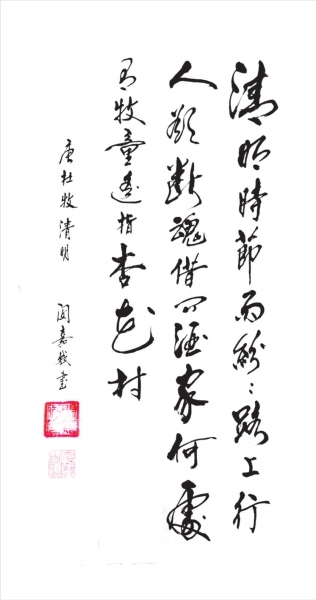 清明時節雨紛々路上行
人欲斷魂借問酒家何處
有牧童遙指杏花村
唐杜牧清明
嘉書